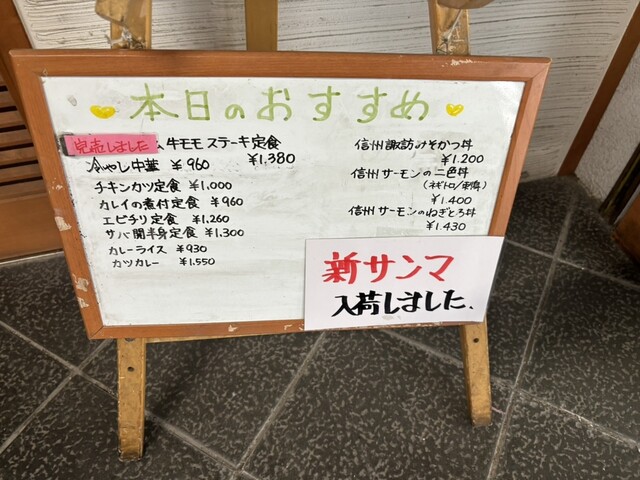 本日のおすすめ
完売しました
牛モモステーキ定食
¥1,380
冷やし中華 ¥960
チキンカツ定食 ¥1,000
カレイの煮付定食 ¥960
エビチリ定食 ¥1,260
サバ開半身定食 ¥1,300
カレーライス ¥930
カツカレー ¥1,550
信州諏訪みそかつ丼
¥1.200
信州サーモンの二色丼
¥1.400
信州サーモンのねぎとろ丼
¥1.430
新サンマ
入荷しました、